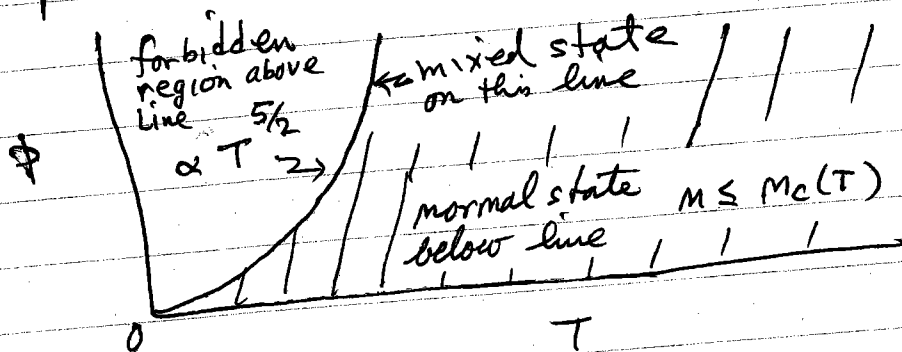 forbidden
region above
line
∝ T^5/2
← mixed state
on this line
p
normal state
below line
n ≤ n_c(T)
0
T